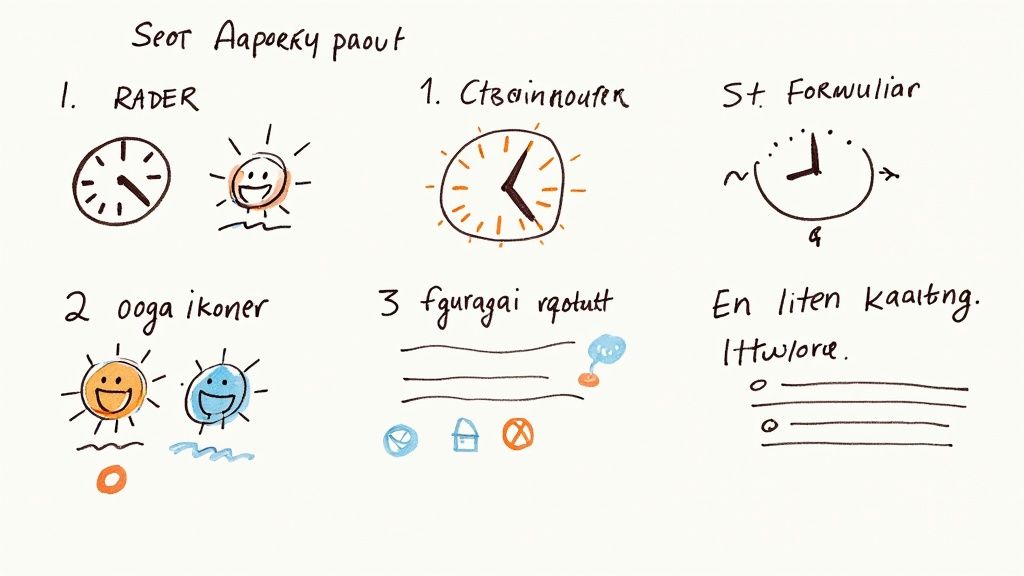 Seot Aaporky paout
1. RADER
1.
St. Formuliar
2 ooga ikoner
3 fguragai rqotutt
En liten kaaitng.